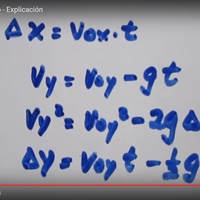 - Explicación
Δx = Vox·t
Vy = Voy - gt
Vy² = Voy² - 2gΔ
Δy = Voy t - ½g